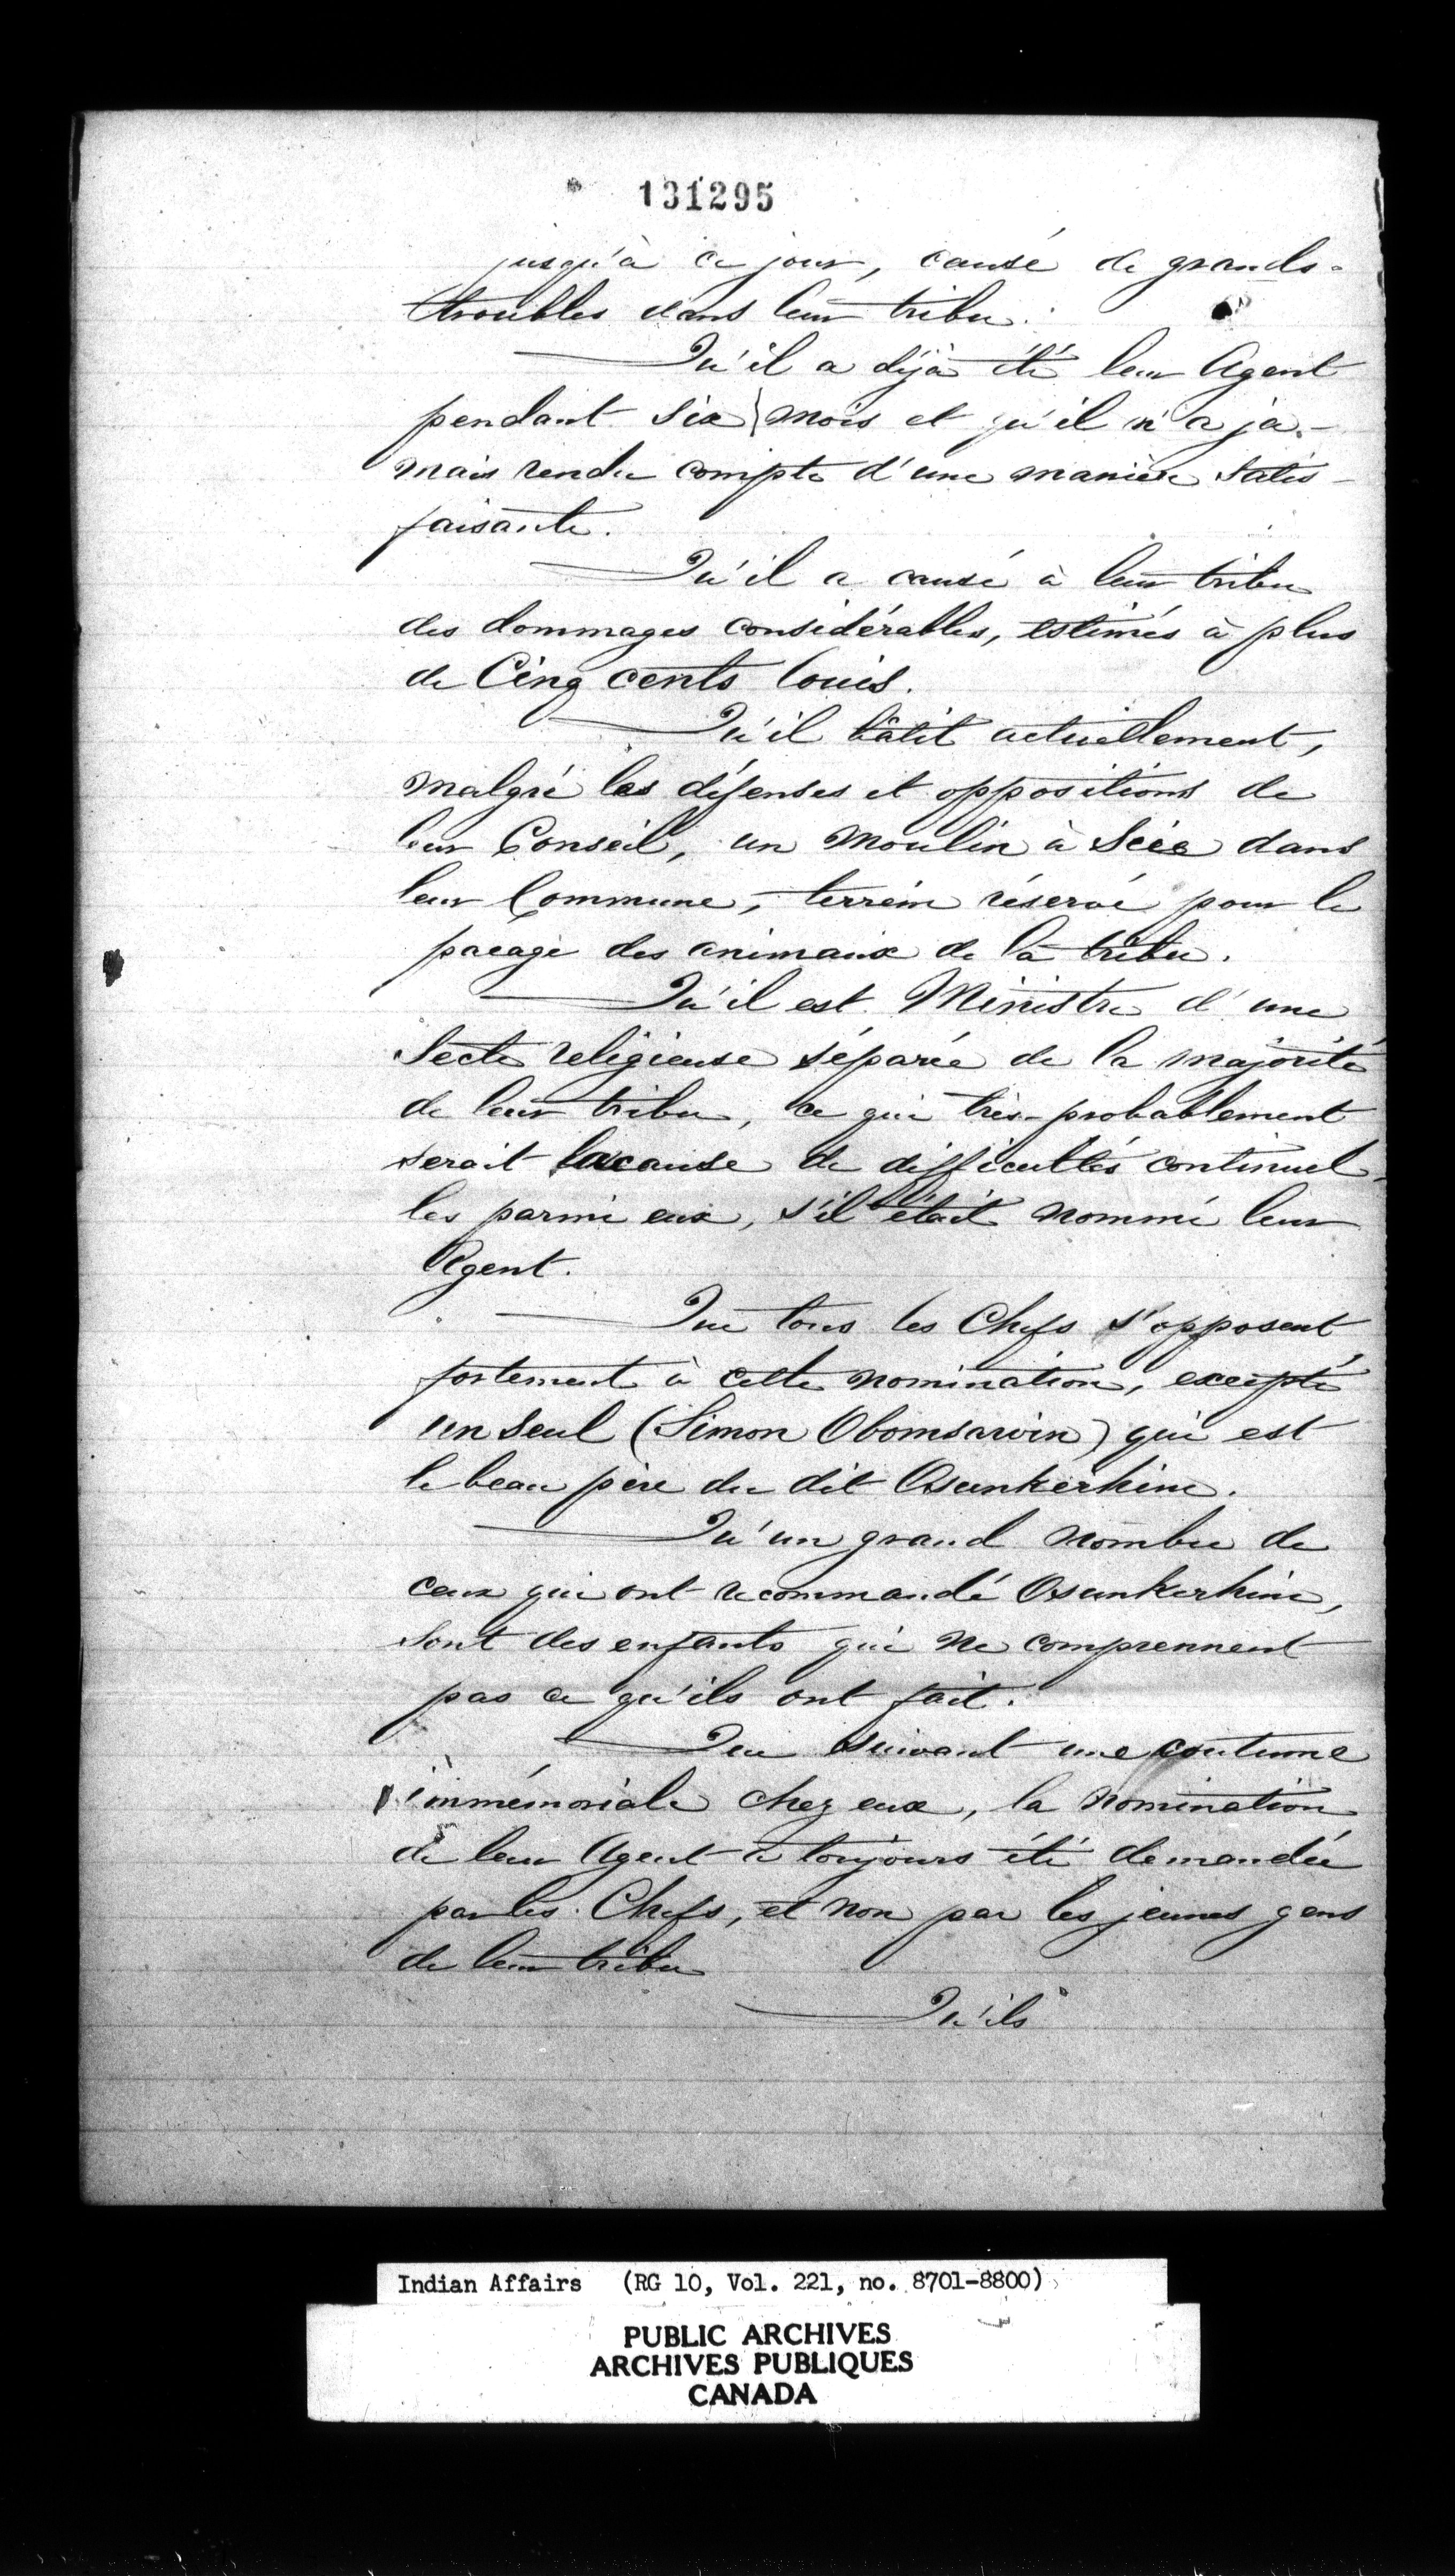 131295
jusqu'à ce jour, causé de grands
troubles dans leur tribu.
Qu'il a déjà été leur Agent
pendant six mois et qu'il n'a ja-
mais rendu compte d'une manière satis-
faisante.
Qu'il a causé à leur tribu
des dommages considérables, estimés à plus
de Cinq cents louis.
Qu'il bâtit actuellement,
malgré les défenses et oppositions de
leur Conseil, un Moulin à Scie dans
leur Commune, terrein réservé pour le
pacage des animaux de la tribu.
Qu'il est Ministre d'une
Secte religieuse séparée de la majorité
de leur tribu, ce qui très-probablement
serait la cause de difficultés continuel-
les parmi eux, s'il était nommé leur
Agent.
Que tous les Chefs s'opposent
fortement à cette nomination, excepté
un seul (Simon Obomsawin) qui est
le beau père du dit Osunkerhine.
Qu'un grand nombre de
ceux qui ont recommandé Osunkerhine,
sont des enfants qui ne comprennent
pas ce qu'ils ont fait.
Que suivant une coutume
immémoriale chez eux, la nomination
de leur Agent a toujours été demandée
par les Chefs, et non par les jeunes gens
de leur tribu
Qu'ils
Indian Affairs (RG 10, Vol. 221, no. 8701-8800)
PUBLIC ARCHIVES
ARCHIVES PUBLIQUES
CANADA